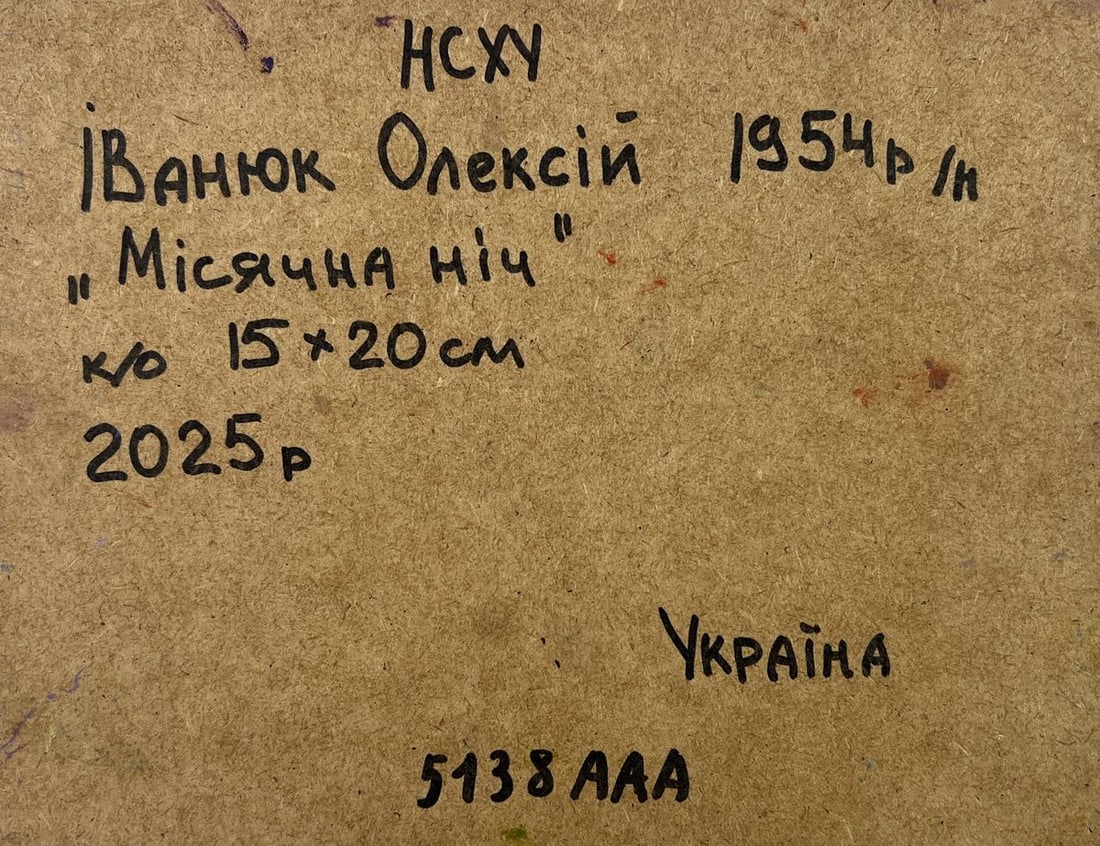 НСХУ
Іванюк Олексій 1954р/н
„Місячна ніч"
к/о 15×20см
2025р
Україна
5138ААА